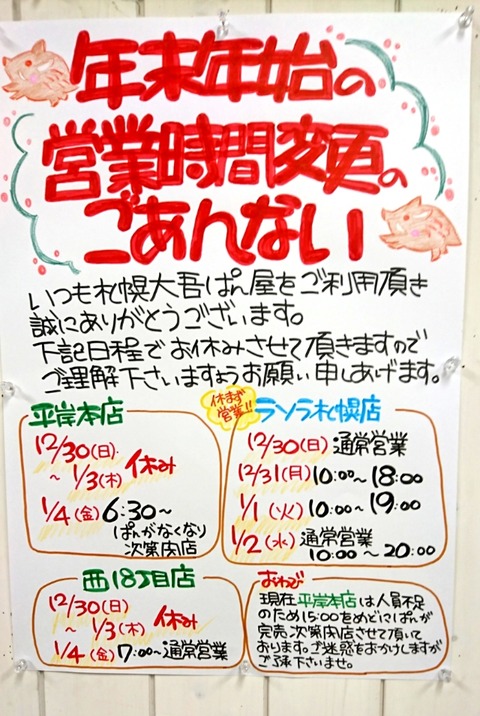 年末年始の
営業時間変更の
ごあんない
いつも札幌大吾ぱん屋をご利用頂き
誠にありがとうございます。
下記日程でお休みさせて頂きますので
ご理解下さいますようお願い申しあげます。
平岸本店
12/30(日)
～1/3(木) 休み
1/4(金) 6:30～
ぱんがなくなり
次第閉店
休まず
営業!!
ラソラ札幌店
12/30(日) 通常営業
12/31(月) 10:00～18:00
1/1(火) 10:00～19:00
1/2(水) 通常営業
10:00～20:00
西18丁目店
12/30(日)
～1/3(木) 休み
1/4(金) 7:00～通常営業
おわび
現在平岸本店は人員不足
のため15:00をめどにぱんが
完売次第閉店させて頂いて
おります。ご迷惑をおかけしますが
ご了承下さいませ。